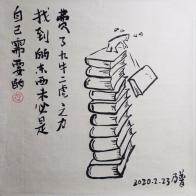 费了九牛二虎之力
找到的东西未必是
自己需要的
2020.2.23